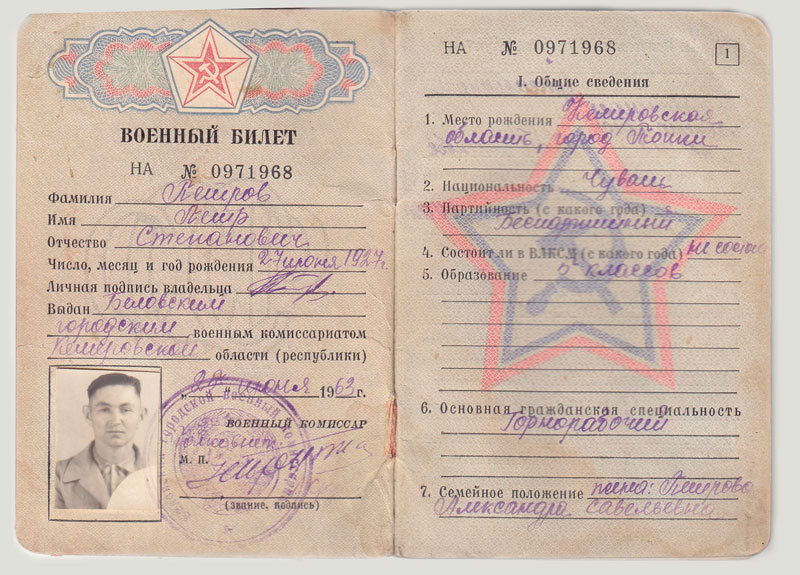 ВОЕННЫЙ БИЛЕТ
НА № 0971968
Фамилия Петров
Имя Петр
Отчество Степанович
Число, месяц и год рождения 27 июня 1927 г.
Личная подпись владельца
Выдан Беловским
городским военным комиссариатом
Кемеровской области (республики)
„29“ июня 1963 г.
ВОЕННЫЙ КОМИССАР
М. П.
(звание, подпись)
НА № 0971968
1
I. Общие сведения
1. Место рождения Кемеровская
область, город Топки
2. Национальность Чуваш
3. Партийность (с какого года)
Беспартийный
4. Состоит ли в ВЛКСМ (с какого года) не состоял
5. Образование 5 классов
6. Основная гражданская специальность
Горнорабочий
7. Семейное положение жена: Петрова
Александра Савельевна